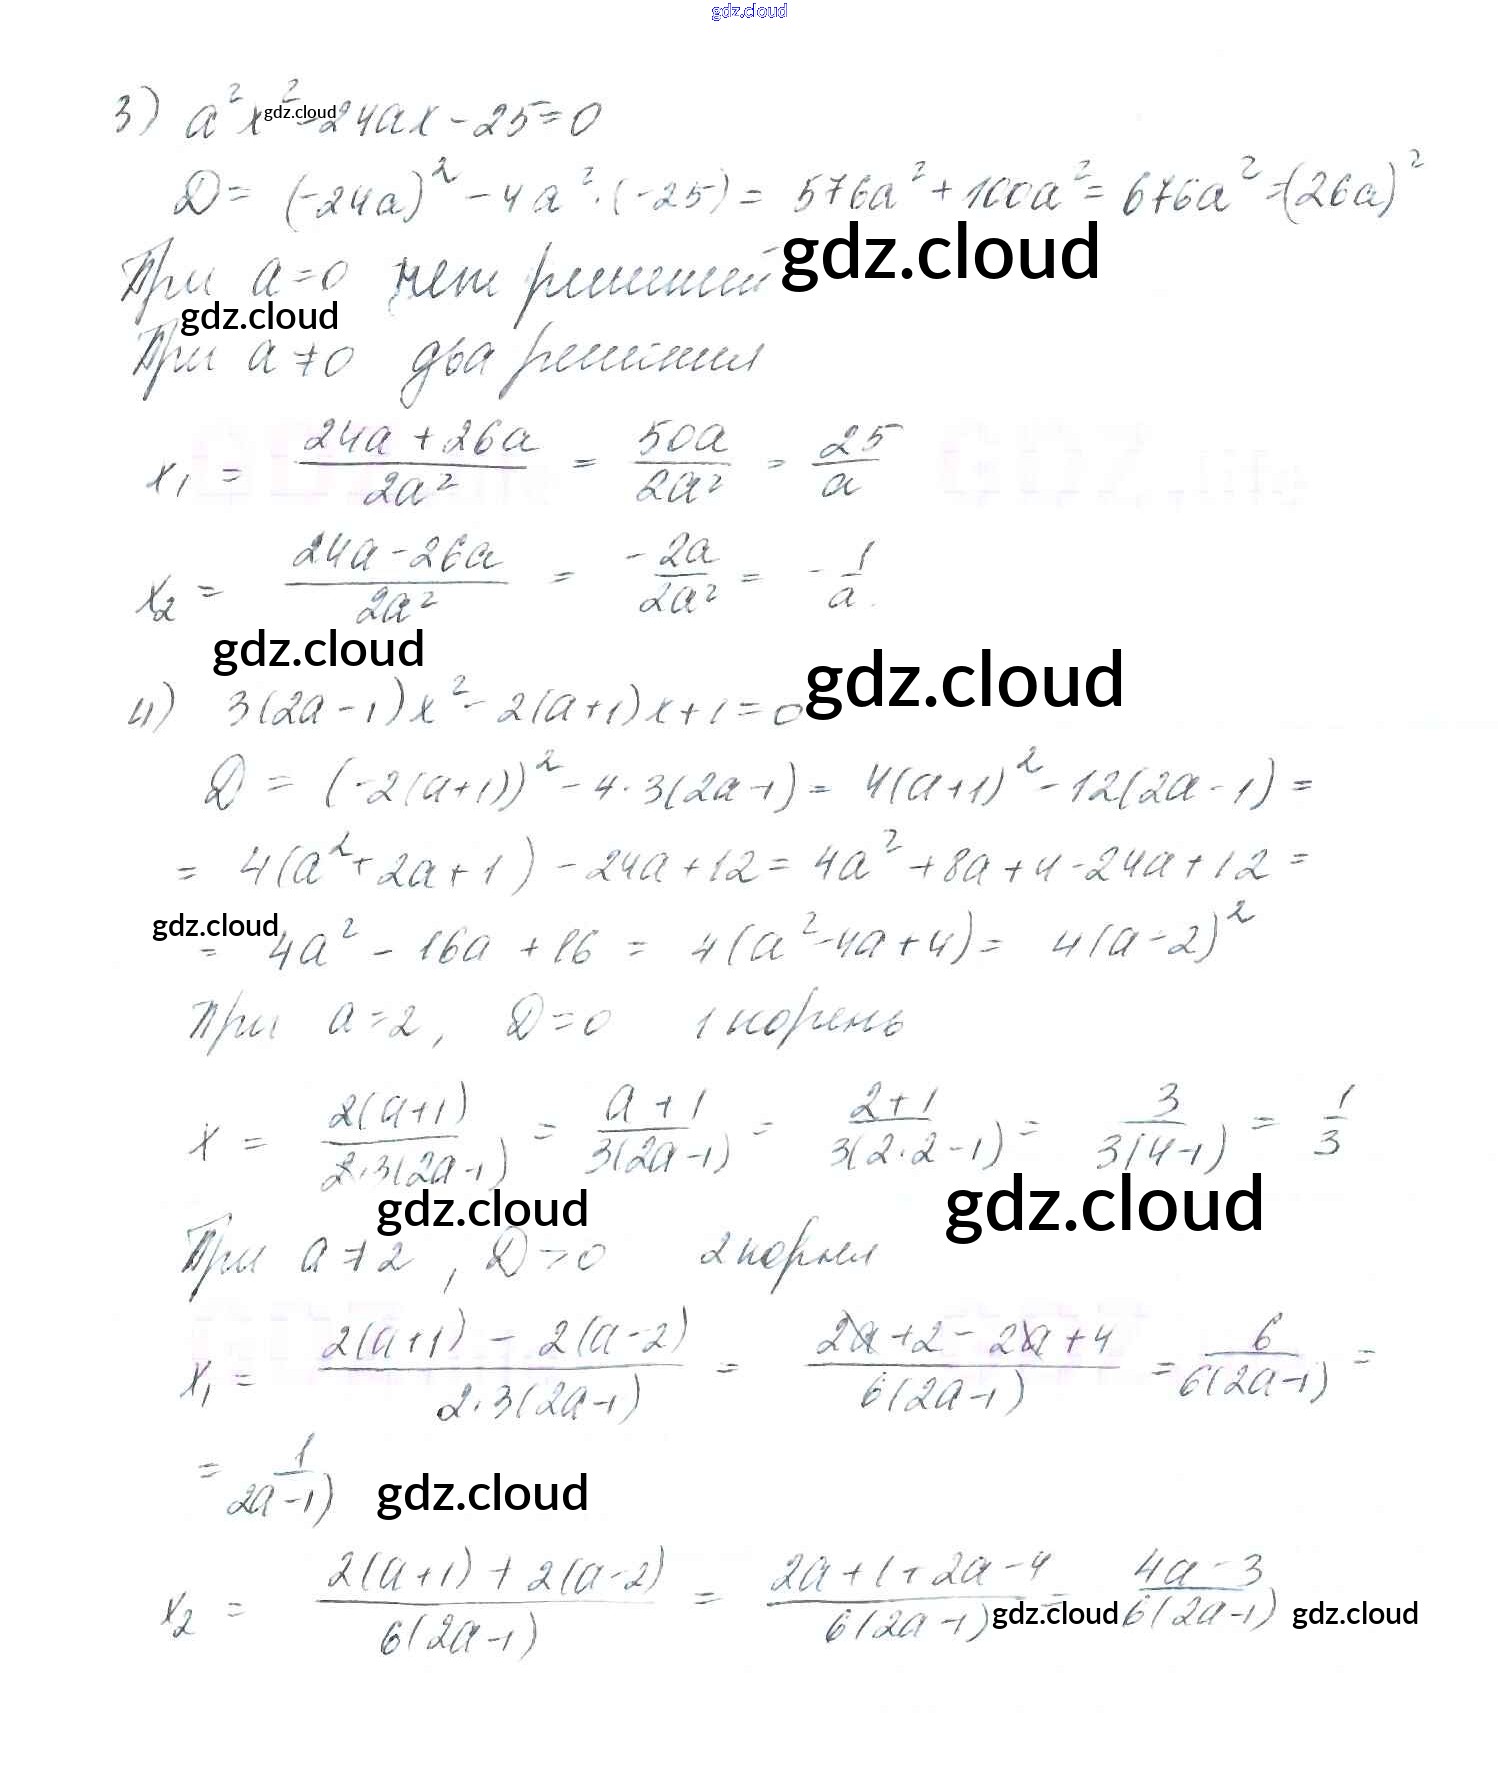 gdz.cloud
3) a²x² - 24ax - 25 = 0
gdz.cloud
Д = (-24a)² - 4a²·(-25) = 576a² + 100a² = 676a² = (26a)²
При a=0 нет решений
gdz.cloud
gdz.cloud
При a≠0 два решения
x₁ = (24a + 26a)/(2a²) = 50a/(2a²) = 25/a
x₂ = (24a - 26a)/(2a²) = -2a/(2a²) = -1/a.
gdz.cloud
gdz.cloud
4) 3(2a-1)x² - 2(a+1)x + 1 = 0
Д = (-2(a+1))² - 4·3(2a-1) = 4(a+1)² - 12(2a-1) =
= 4(a² + 2a + 1) - 24a + 12 = 4a² + 8a + 4 - 24a + 12 =
gdz.cloud
= 4a² - 16a + 16 = 4(a² - 4a + 4) = 4(a-2)²
При a=2, Д=0 1 корень
x = 2(a+1)/(2·3(2a-1)) = (a+1)/(3(2a-1)) = (2+1)/(3(2·2-1)) = 3/(3(4-1)) = 1/3
gdz.cloud
gdz.cloud
При a≠2, Д>0 2 корня
x₁ = (2(a+1) - 2(a-2))/(2·3(2a-1)) = (2a+2-2a+4)/(6(2a-1)) = 6/(6(2a-1)) =
= 1/2a-1)
gdz.cloud
x₂ = (2(a+1) + 2(a-2))/(6(2a-1)) = (2a+1+2a-4)/(6(2a-1)) = (4a-3)/(6(2a-1))
gdz.cloud
gdz.cloud